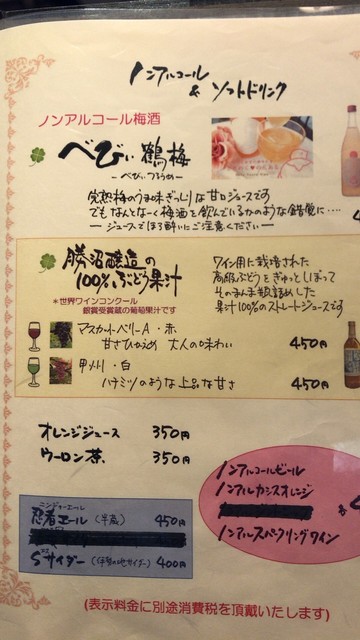 ノンアルコール
&
ソフトドリンク
ノンアルコール梅酒
べびぃ鶴梅
－べびぃつるうめ－
完熟梅のうま味ぎっしりな甘口ジュースです
でもなんとな〜く梅酒を飲んでいるかのような錯覚に・・・・
－ジュースでほろ酔いにご注意ください－
勝沼醸造の
100％ぶどう果汁
＊世界ワインコンクール
銀賞受賞蔵の葡萄果汁です
ワイン用に栽培された
高級ぶどうをぎゅっとしぼって
そのまんま瓶詰めした
果汁100％のストレートジュースです
マスカットベリーA・赤
甘さひかえめ 大人の味わい 450円
甲州・白
ハチミツのような上品な甘さ 450円
オレンジジュース 350円
ウーロン茶 350円
ニンジャーエール
忍者エール（半蔵） 450円
Sサイダー 400円
ノンアルコールビール
ノンアルカシスオレンジ
ノンアルスパークリングワイン
(表示料金に別途消費税を頂戴いたします)